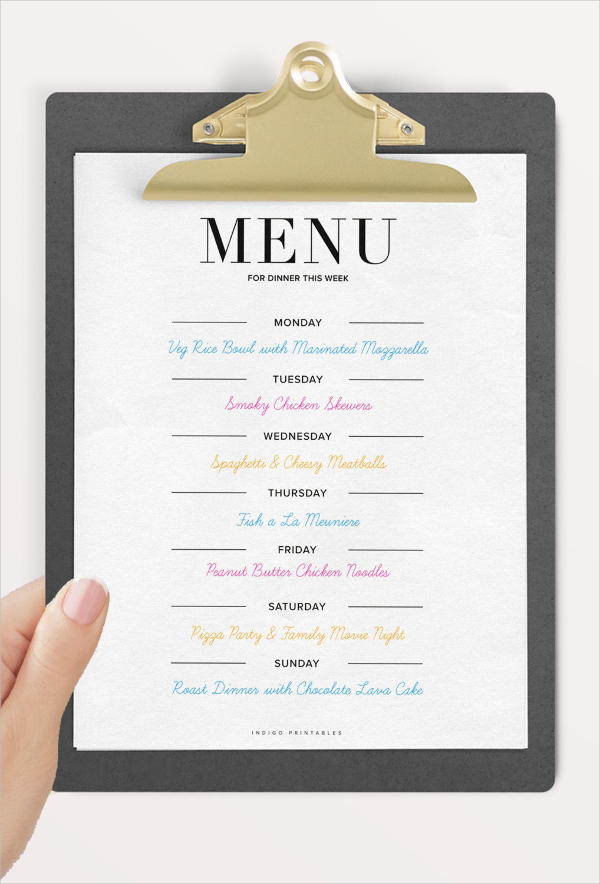 MENU
FOR DINNER THIS WEEK
MONDAY
Veg Rice Bowl with Marinated Mozzarella
TUESDAY
Smoky Chicken Skewers
WEDNESDAY
Spaghetti & Cheesy Meatballs
THURSDAY
Fish a La Meuniere
FRIDAY
Peanut Butter Chicken Noodles
SATURDAY
Pizza Party & Family Movie Night
SUNDAY
Roast Dinner with Chocolate Lava Cake
INDIGO PRINTABLES